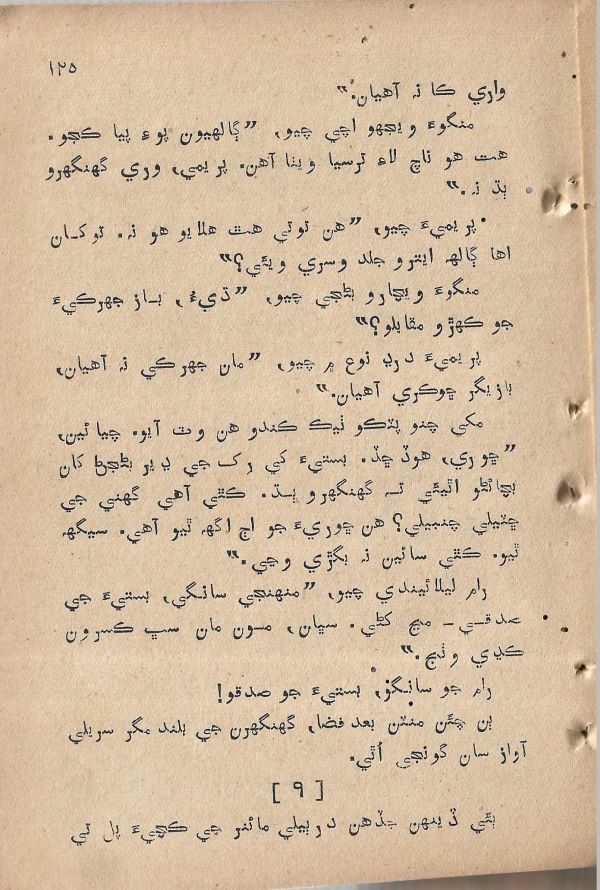 ١٢٥
واري ڪا نہ آهيان.“
منگوءَ ويجهو اچي چيو، ”ڳالهيون پوءِ پيا ڪجو.
هت هو ناچ لاءِ ترسيا ويٺا آهن. پريمي، وري گهنگهرو
ٻڌ نہ.“
پريميءَ چيو، ”هن توتي هٿ هلايو هو نہ. توکان
اها ڳالهہ ايترو جلد وسري ويئي؟“
منگوءَ ويچارو بڻجي چيو، ”ڌيءُ، باز جهرڪيءَ
جو ڪهڙو مقابلو؟“
پريميءَ درد نوع ۾ چيو، ”مان جهرڪي نہ آهيان،
بازيگر ڇوڪري آهيان.“
مکي چنو پٽڪو ٺيڪ ڪندو هن وٽ آيو. چيائين،
”ڇوري، هوڏ ڇڏ. بستيءَ کي رک جي ڍير بڻجڻ کان
بچائڻو اٿيئي تہ گهنگهرو ٻڌ. ڪٿي آهي گهني جي
چٽيلي چنبيلي؟ هن ڇوريءَ جو اڄ اگهہ ٿيو آهي. سيگهہ
ٿيو. ڪٿي سائين نہ بگڙي وڃي.“
رام ليلائيندي چيو، ”منهنجي سانگي، بستيءَ جي
صدقي - مڃ کڻي. سڀان، مون مان سڀ ڪسرون
ڪڍي وٺج.“
رام جو سانگو، بستيءَ جو صدقو!
ٻن چئن منٽن بعد فضا، گهنگهرن جي بلند مگر سريلي
آواز سان گونجي اُٿي.
[ ٩ ]
ٻئي ڏينهن جڏهن درٻيلي مائنر جي ڪچيءَ پل تي